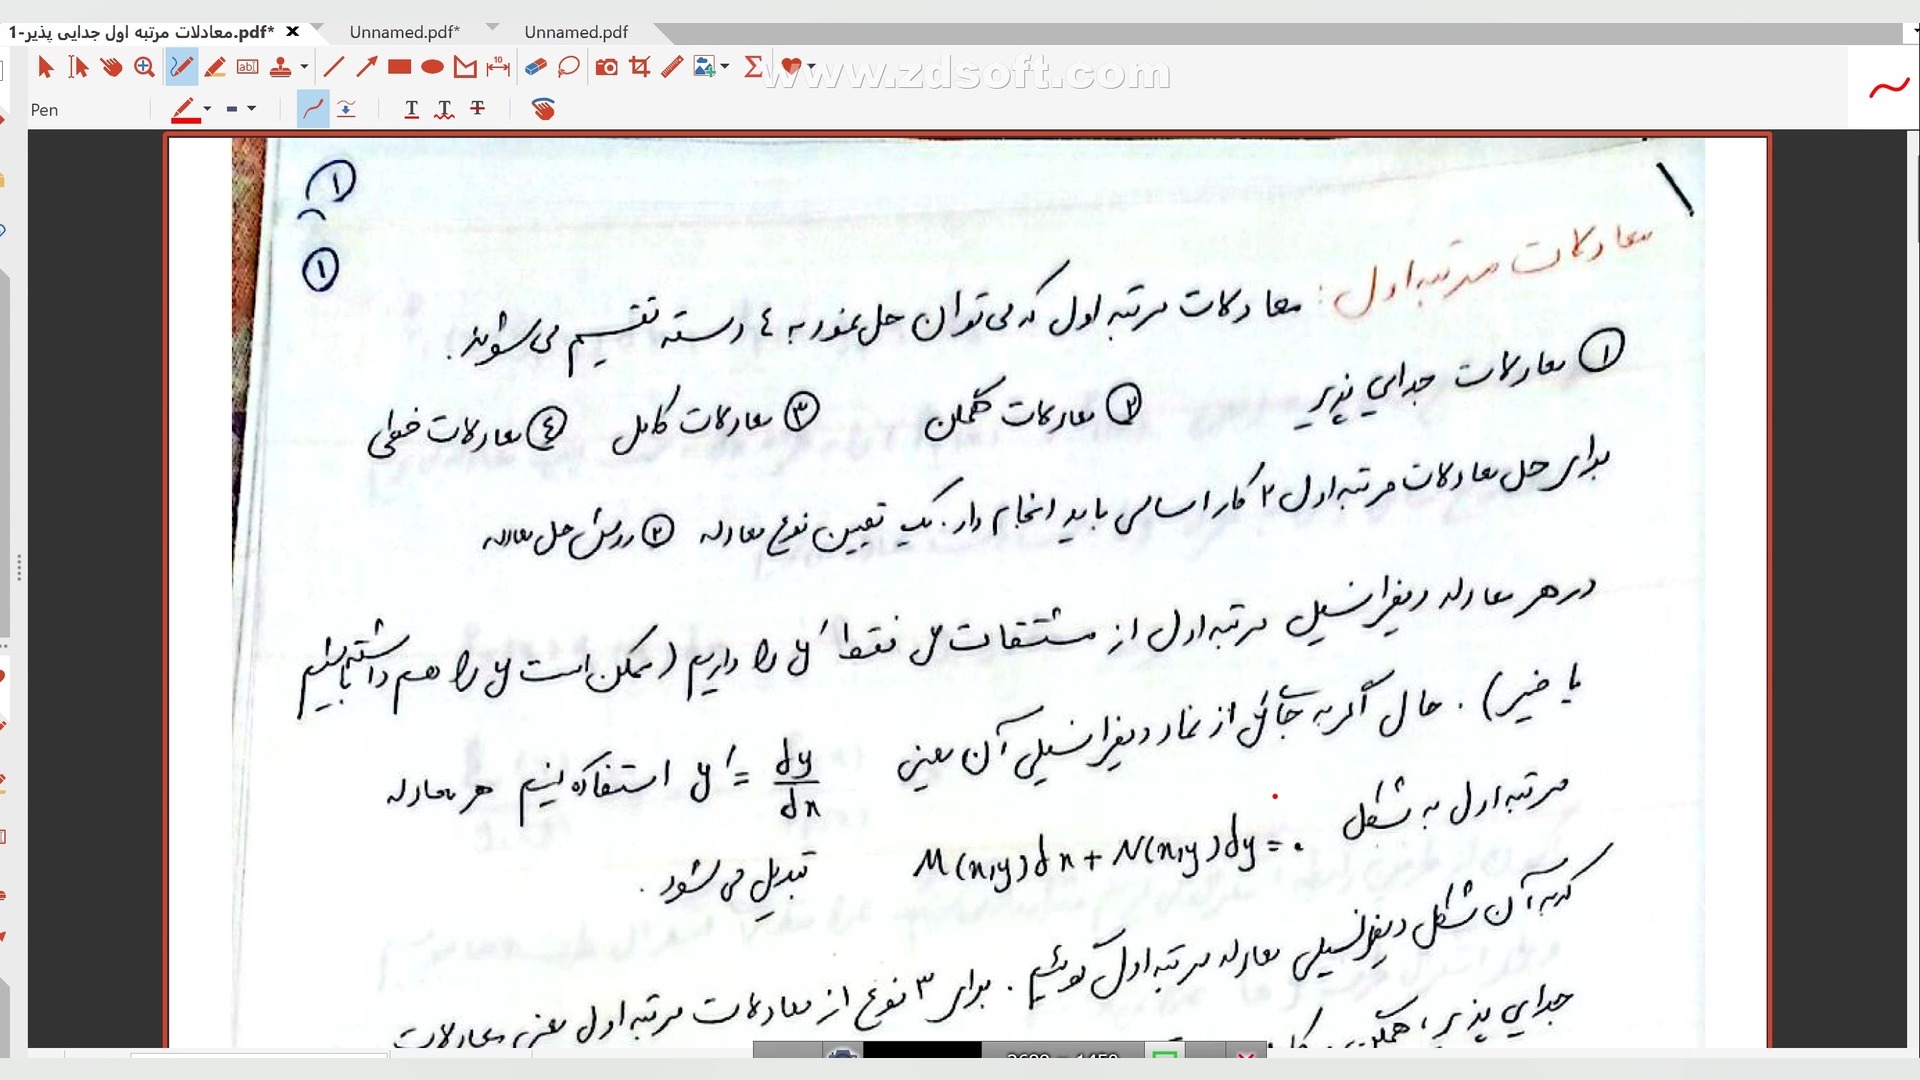 1-معادلات مرتبه اول جدایی پذیر.pdf* Unnamed.pdf* Unnamed.pdf
www.zdsoft.com
Pen
۱
۱
معادلات مرتبه اول: معادلات مرتبه اول که می توان حل نمود به ٤ دسته تقسیم می شوند.
① معادلات جدایی پذیر ② معادلات همگن ③ معادلات کامل ④ معادلات خطی
برای حل معادلات مرتبه اول ۲ کار اساسی باید انجام داد. یک تعیین نوع معادله ② روش حل معادله
در هر معادله دیفرانسیل مرتبه اول از مشتقات فقط y′ را داریم (ممکن است y را هم داشته باشیم
یا خیر). حال اگر به جای از نماد دیفرانسیلی آن یعنی y′ = dy/dx استفاده کنیم هر معادله
مرتبه اول به شکل M(x,y)dx + N(x,y)dy = ۰ تبدیل می شود.
که به آن شکل دیفرانسیلی معادله مرتبه اول گوئیم. برای ۳ نوع از معادلات مرتبه اول یعنی معادلات
جدایی پذیر، همگن